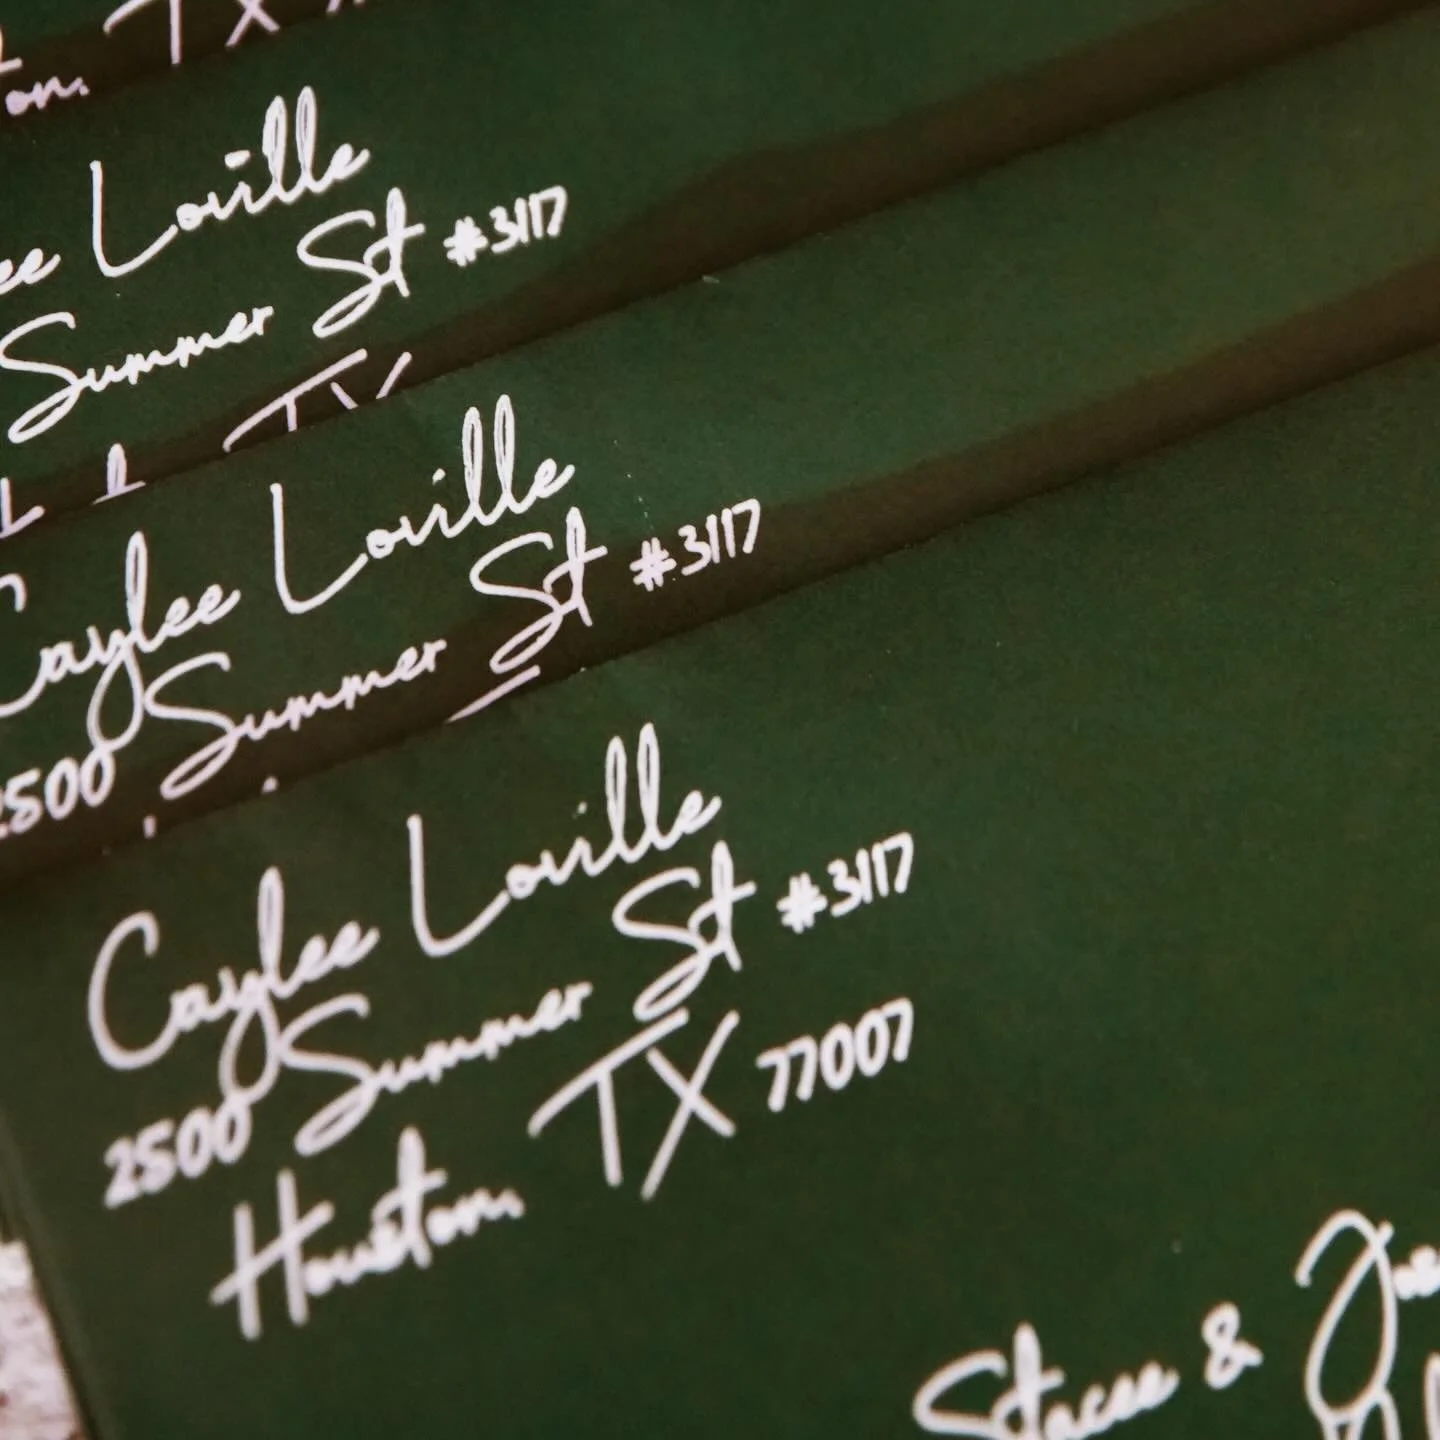 TX
on,
Loville
Summer St #3117
TX
Caylee Loville
2500 Summer St #3117
Caylee Loville
2500 Summer St #3117
Houston, TX 77007
Stacee &